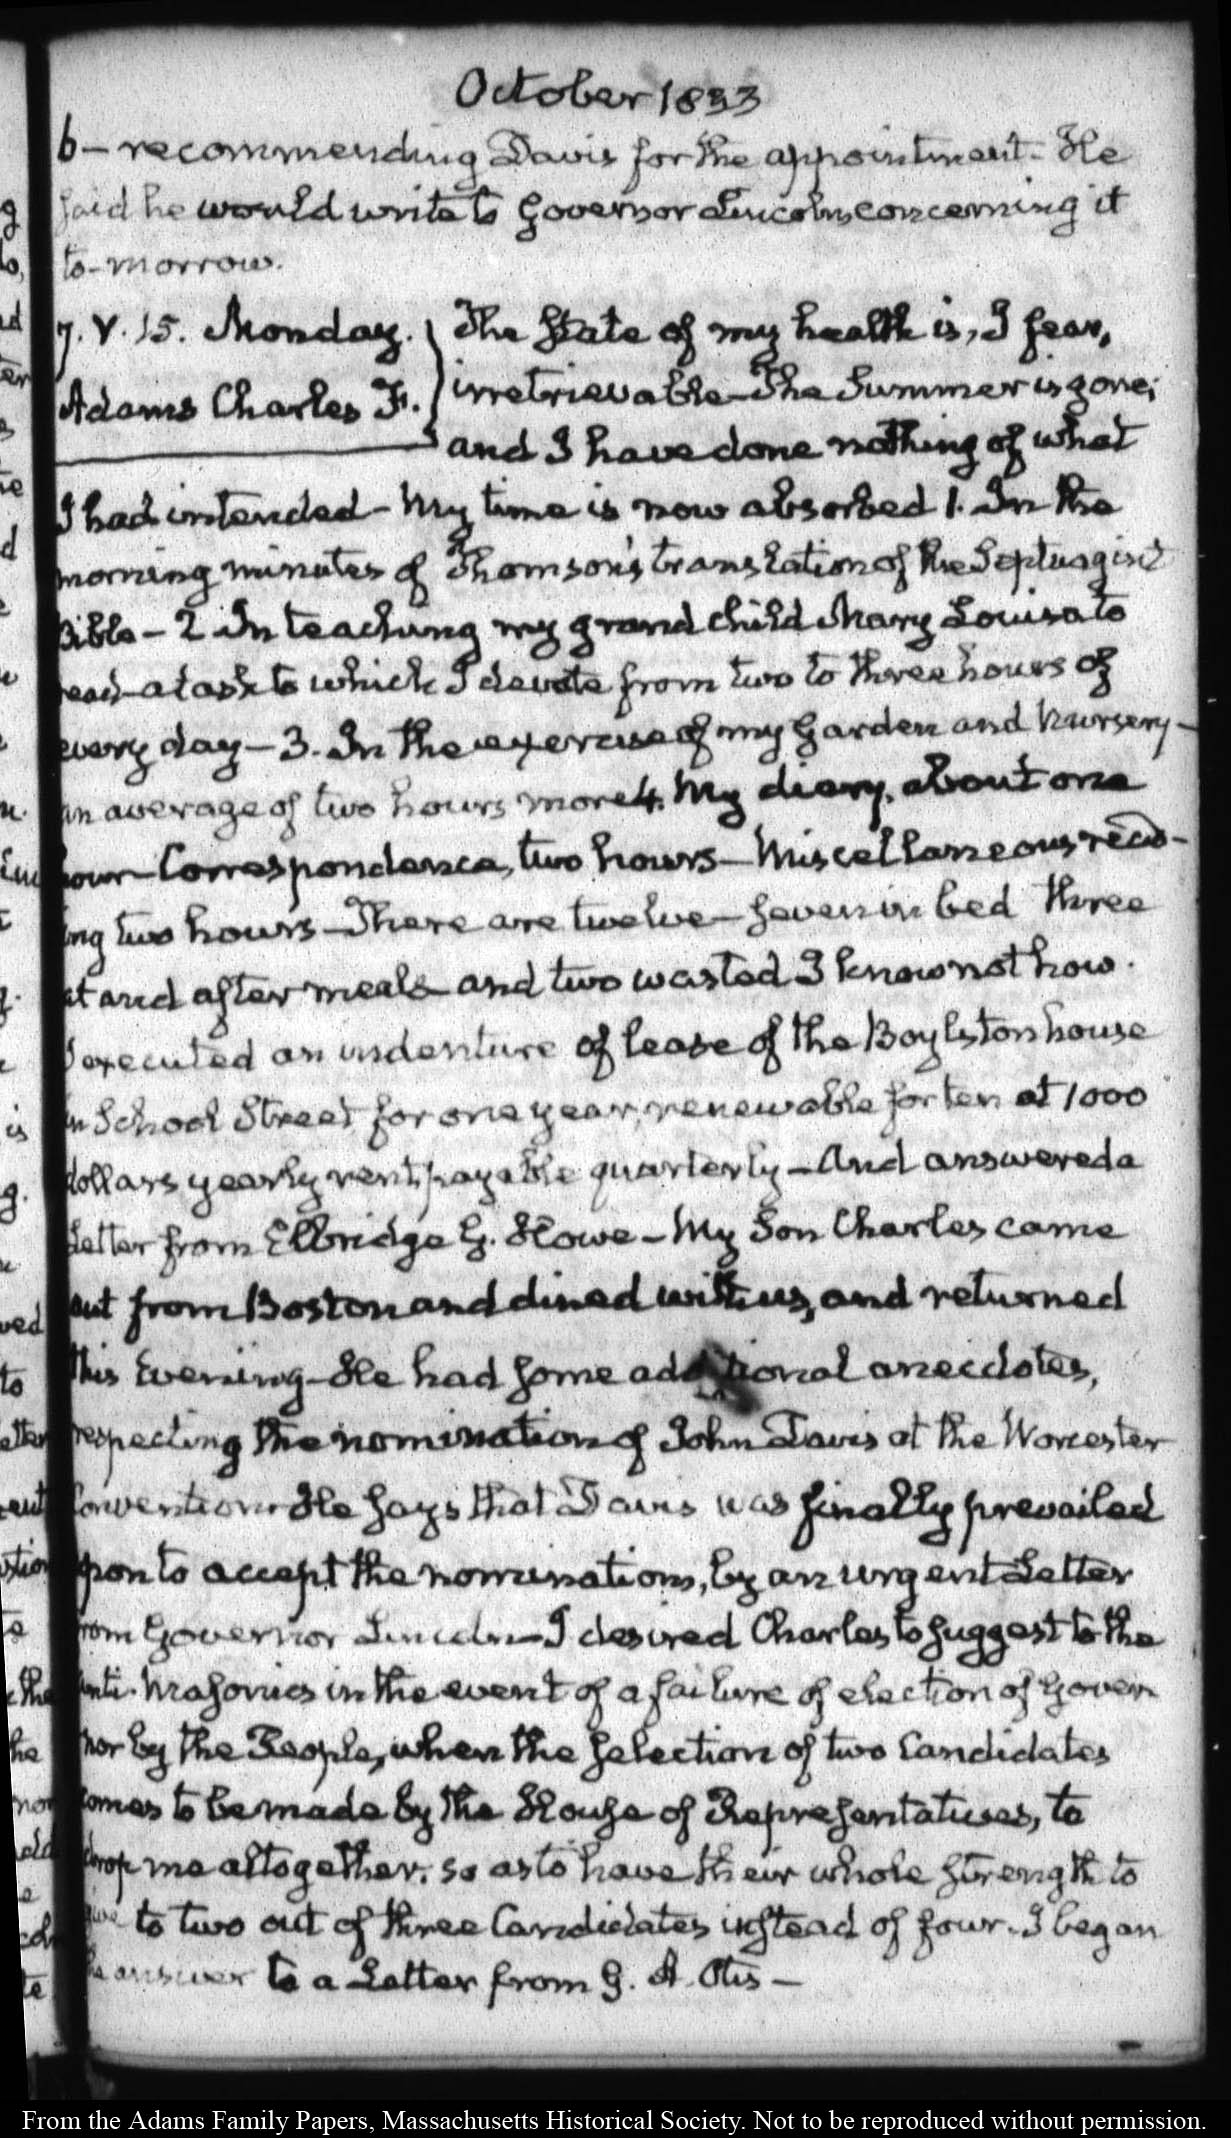 October 1833
6 – recommending Davis for the appointment – He
said he would write to Governor Lincoln concerning it
to-morrow.
7. V. 15. Monday. The State of my health is, I fear,
Adams Charles F. irretrievable – The Summer is gone;
and I have done nothing of what
I had intended – My time is now absorbed 1. In the
morning minutes of Thomson's translation of the Septuagint
Bible – 2 In teaching my grand child Mary Louisa to
read – a task to which I devote from two to three hours of
every day – 3. In the exercise of my Garden and Nursery –
an average of two hours more 4. My diary, about one
hour – Correspondence, two hours – Miscellaneous read-
ing two hours – There are twelve – seven in bed three
at and after meals and two wasted I know not how.
I executed an indenture of lease of the Boylston house
in School Street for one year, renewable for ten at 1000
dollars yearly rent, payable quarterly – And answered a
Letter from Elbridge G. Howe – My Son Charles came
out from Boston and dined with us, and returned
this Evening – He had some additional anecdotes,
respecting the nomination of John Davis at the Worcester
Convention – He says that Davis was finally prevailed
upon to accept the nomination, by an urgent Letter
from Governor Lincoln – I desired Charles to suggest to the
Anti-Masonics in the event of a failure of election of Gover-
nor by the People, when the selection of two Candidates
comes to be made by the House of Representatives, to
drop me altogether. so as to have their whole strength to
give to two out of three Candidates instead of four. I began
the answer to a Letter from G. A. Otis –
From the Adams Family Papers, Massachusetts Historical Society. Not to be reproduced without permission.